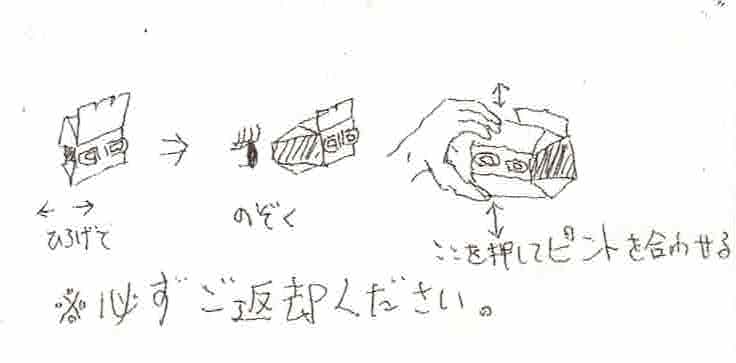 ひろげて
のぞく
ここを押してピントを合わせる
※必ずご返却ください。